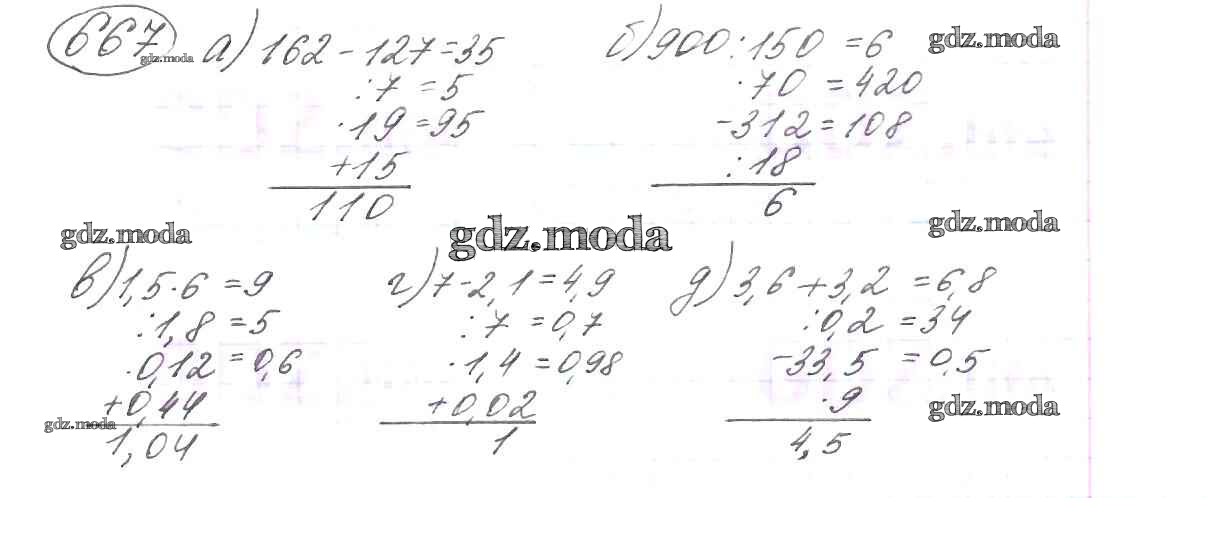 667 а) 162 - 127 = 35
: 7 = 5
· 19 = 95
+ 15
110
б) 900 : 150 = 6
· 70 = 420
- 312 = 108
: 18
6
gdz.moda
gdz.moda
gdz.moda
gdz.moda
gdz.moda
в) 1,5 · 6 = 9
: 1,8 = 5
· 0,12 = 0,6
+ 0,44
1,04
г) 7 - 2,1 = 4,9
: 7 = 0,7
· 1,4 = 0,98
+ 0,02
1
д) 3,6 + 3,2 = 6,8
: 0,2 = 34
- 33,5 = 0,5
· 9
4,5
gdz.moda
gdz.moda